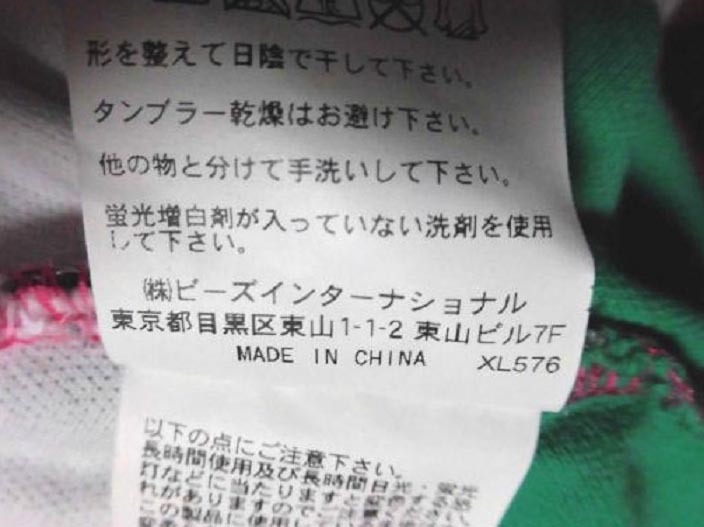 形を整えて日陰で干して下さい。
タンブラー乾燥はお避け下さい。
他の物と分けて手洗いして下さい。
蛍光増白剤が入っていない洗剤を使用
して下さい。
㈱ビーズインターナショナル
東京都目黒区東山1-1-2 東山ビル7F
MADE IN CHINA XL576
以下の点にご注意下さい。
長時間使用及び長時間日光・蛍光
灯などに当たりますと
れがありますのでご注意
この製品に使用し